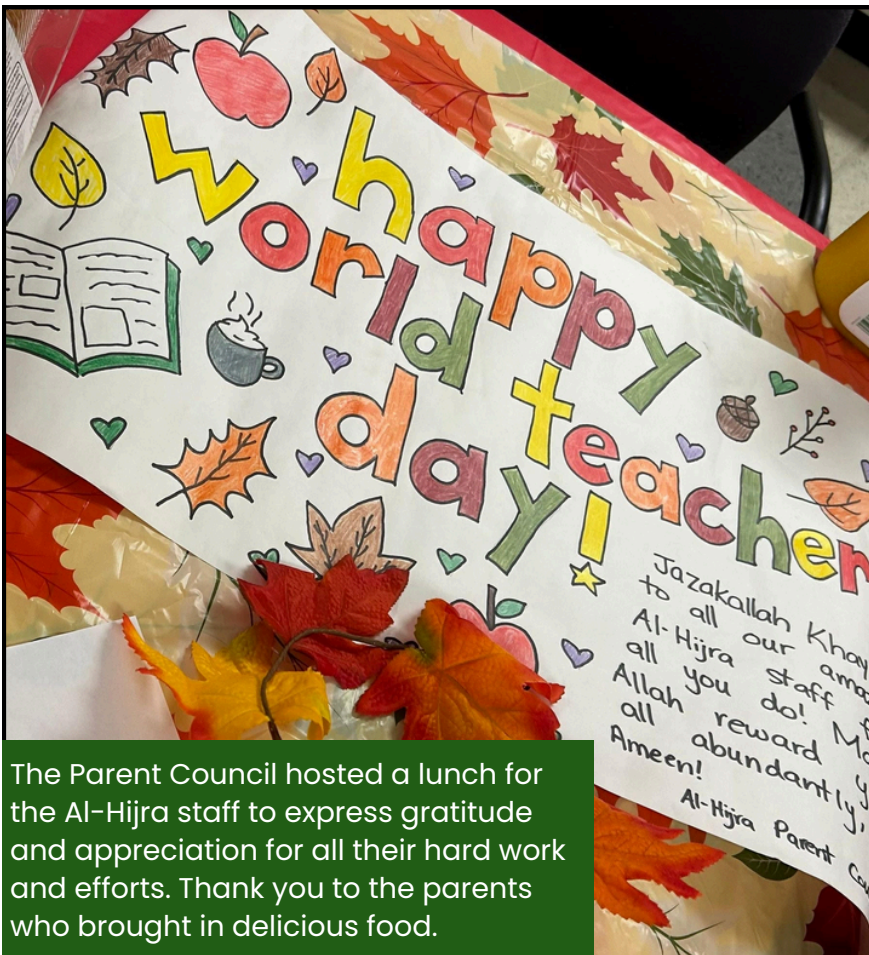 happy
world teacher
day!
Jazakallah
to all our
Al-Hijra staff
all you do!
Allah reward
all abundantly,
Ameen!
Al-Hijra Parent
The Parent Council hosted a lunch for
the Al-Hijra staff to express gratitude
and appreciation for all their hard work
and efforts. Thank you to the parents
who brought in delicious food.